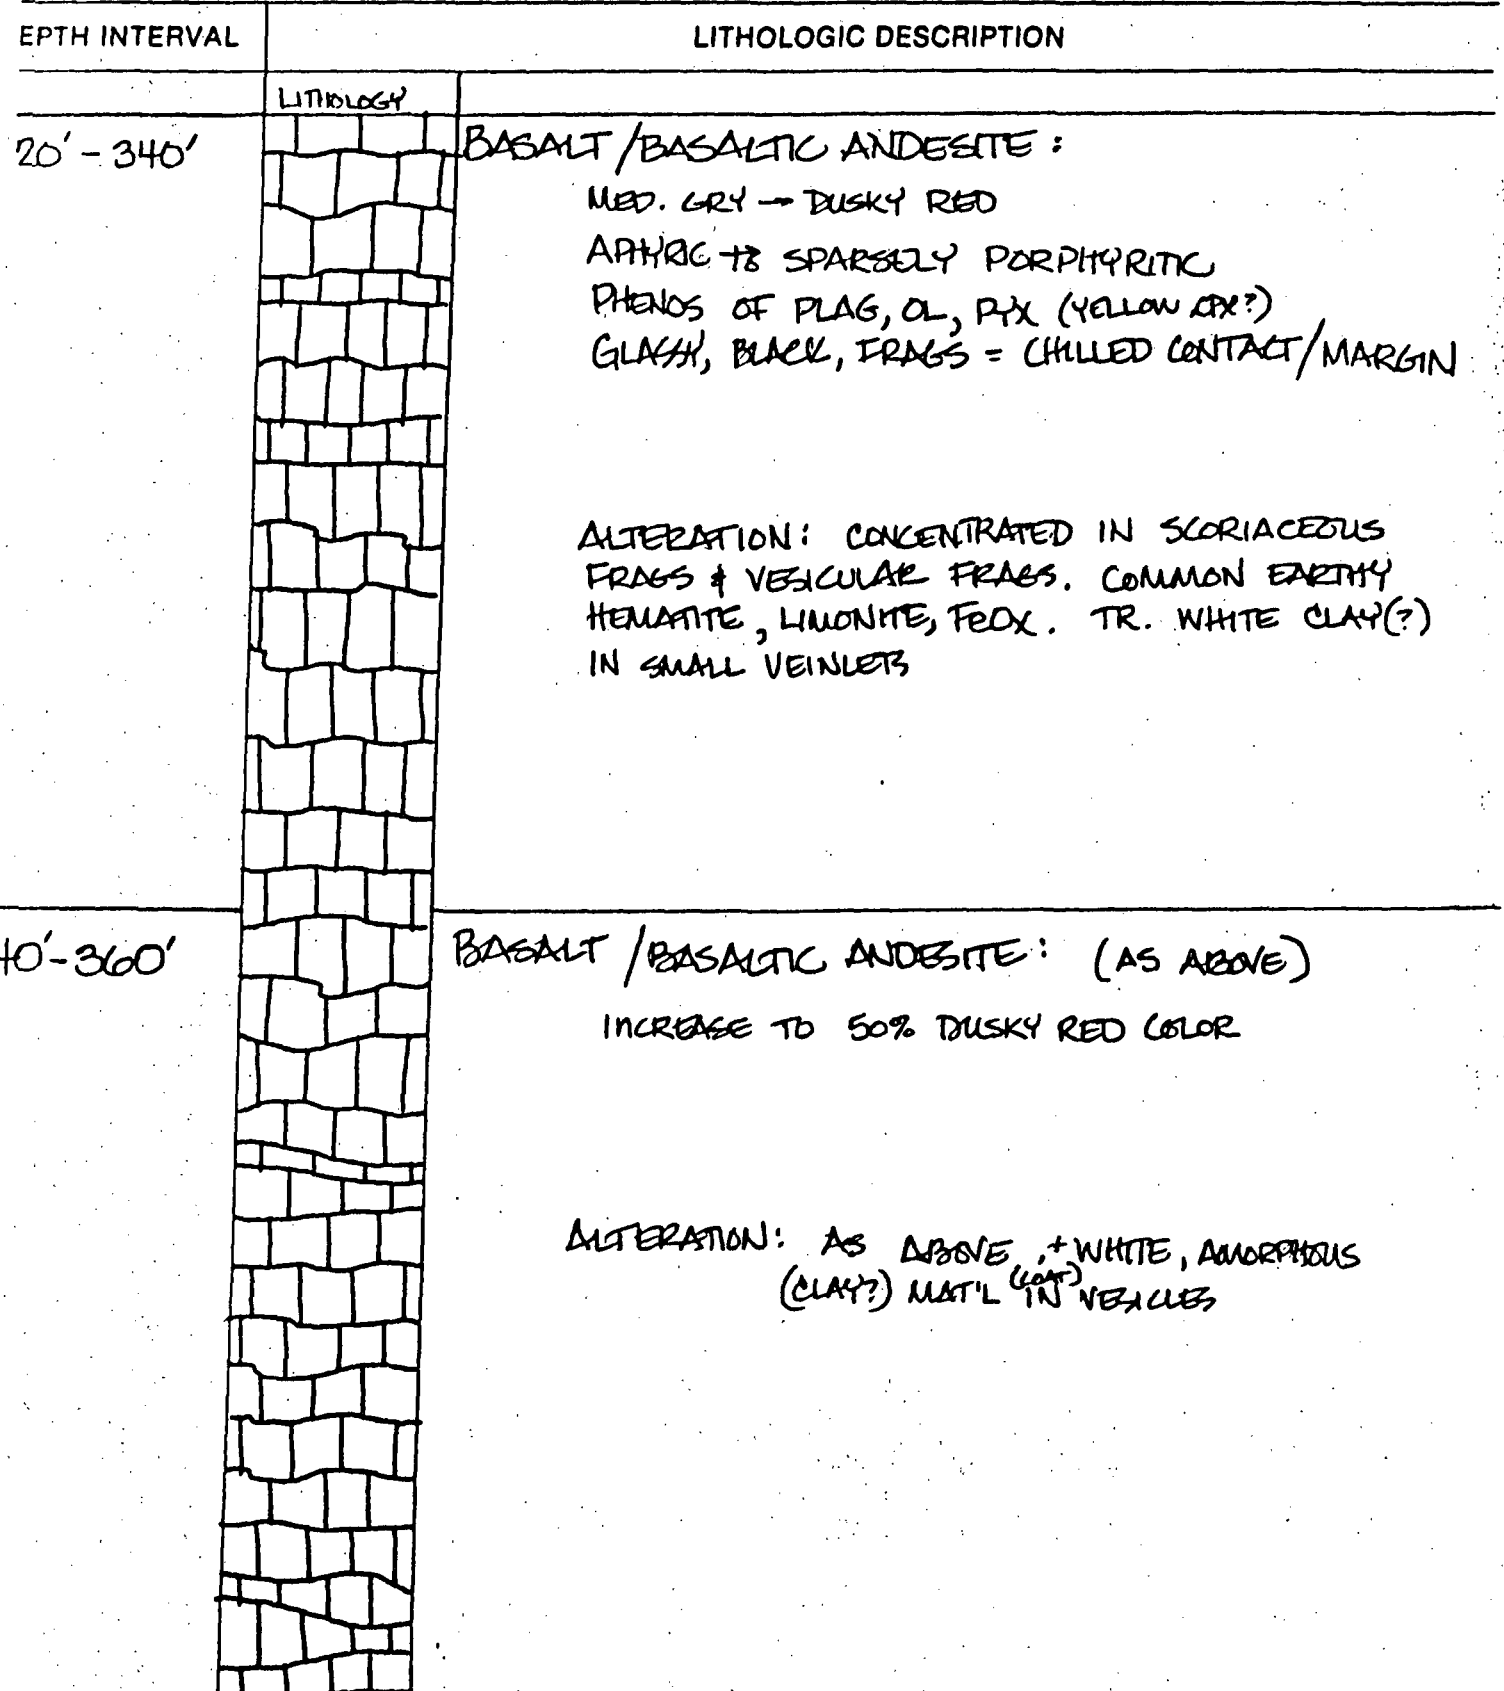 EPTH INTERVAL
LITHOLOGIC DESCRIPTION
LITHOLOGY
20' - 340'
BASALT / BASALTIC ANDESITE :
MED. GRY → DUSKY RED
APHYRIC to SPARSELY PORPHYRITIC
PHENOS OF PLAG, OL, PYX (YELLOW CPX?)
GLASSY, BLACK, FRAGS = CHILLED CONTACT/MARGIN
ALTERATION: CONCENTRATED IN SCORIACEOUS
FRAGS & VESICULAR FRAGS. COMMON EARTHY
HEMATITE, LIMONITE, FeOx. TR. WHITE CLAY(?)
IN SMALL VEINLETS
40' - 360'
BASALT / BASALTIC ANDESITE: (AS ABOVE)
INCREASE TO 50% DUSKY RED COLOR
ALTERATION: AS ABOVE, + WHITE, AMORPHOUS
(CLAY?) MAT'L (COAT) IN VESICLES